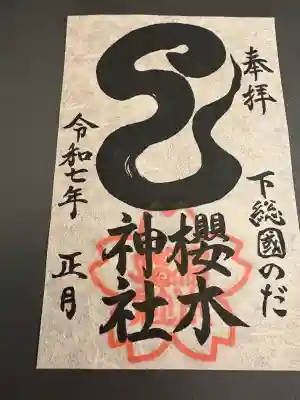 奉拝
下総國のだ
櫻木
神社
令和七年 正月